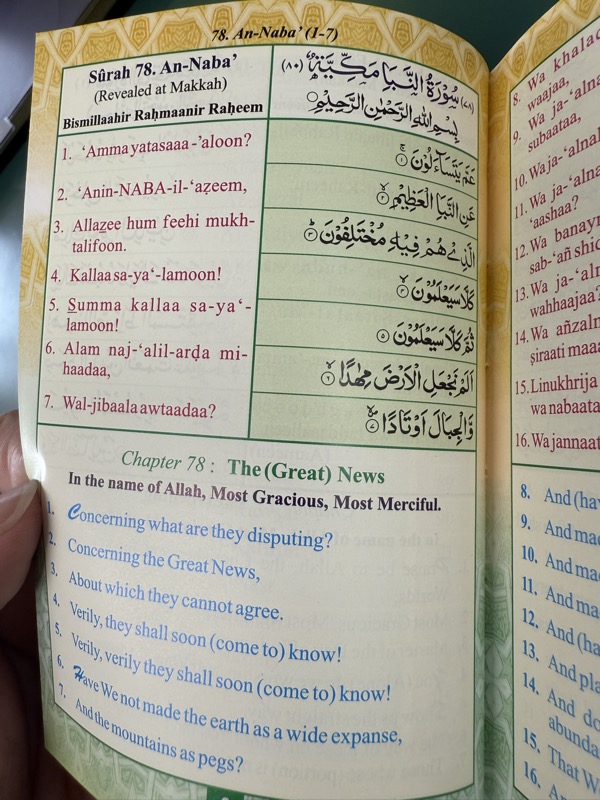 78. An-Naba’ (1-7)
Sûrah 78. An-Naba’
(Revealed at Makkah)
Bismillaahir Raḥmaanir Raḥeem
(٧٨) سُوْرَةُ النَّبَاِ مَكِّيَّةٌ (٨٠)
بِسْمِ اللهِ الرَّحْمٰنِ الرَّحِيْمِ
1. ‘Amma yatasaaa-’aloon?
عَمَّ يَتَسَآءَلُوْنَ ١
2. ‘Anin-NABA-il-‘aẓeem,
عَنِ النَّبَاِ الْعَظِيْمِ ٢
3. Allaẓee hum feehi mukh-
talifoon.
الَّذِيْ هُمْ فِيْهِ مُخْتَلِفُوْنَ ٣
4. Kallaa sa-ya‘-lamoon!
كَلَّا سَيَعْلَمُوْنَ ٤
5. Summa kallaa sa-ya‘-
lamoon!
ثُمَّ كَلَّا سَيَعْلَمُوْنَ ٥
6. Alam naj-‘alil-arḍa mi-
haadaa,
اَلَمْ نَجْعَلِ الْاَرْضَ مِهٰدًا ٦
7. Wal-jibaala awtaadaa?
وَّالْجِبَالَ اَوْتَادًا ٧
Chapter 78 : The (Great) News
In the name of Allah, Most Gracious, Most Merciful.
1. Concerning what are they disputing?
2. Concerning the Great News,
3. About which they cannot agree.
4. Verily, they shall soon (come to) know!
5. Verily, verily they shall soon (come to) know!
6. Have We not made the earth as a wide expanse,
7. And the mountains as pegs?
8. Wa khalac
waajaa,
9. Wa ja-‘alna
subaataa,
10. Wa ja-‘alnal
11. Wa ja-‘alna
‘aashaa?
12. Wa banayn
sab-‘añ shic
13. Wa ja-‘aln
wahhaajaa?
14. Wa añzaln
ṣiraati maaa
15. Linukhrija
wa nabaata
16. Wa jannaat
8. And (hav
9. And mad
10. And ma
11. And ma
12. And (ha
13. And pla
14. And do
abunda
15. That W
16.